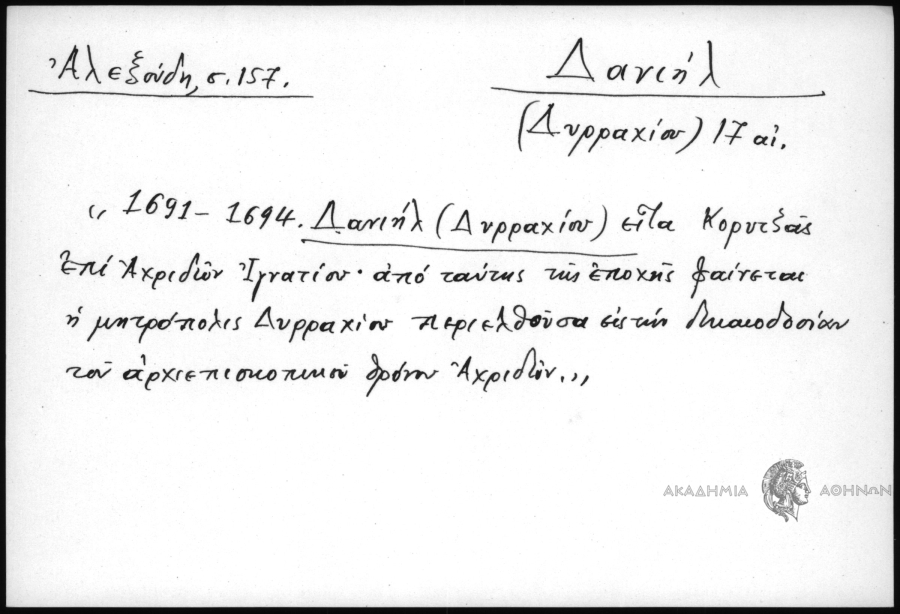 Ἀλεξούδη, σ. 157.
Δανιήλ
(Δυρραχίου) 17 αἰ.
„ 1691 – 1694. Δανιήλ (Δυρραχίου) εἶτα Κορυτζᾶς
ἐπί Ἀχριδῶν Ἰγνατίου· ἀπό ταύτης τῆς ἐποχῆς φαίνεται
ἡ μητρόπολις Δυρραχίου περιελθοῦσα εἰς τήν δικαιοδοσίαν
τοῦ ἀρχιεπισκοπικοῦ θρόνου Ἀχριδῶν.„
ΑΚΑΔΗΜΙΑ ΑΘΗΝΩΝ